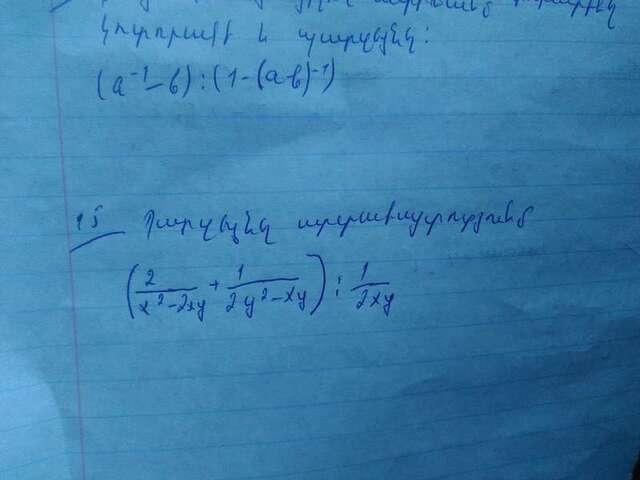 կոտորակի և պարզեցնել:
(a⁻¹-b):(1-(ab)⁻¹)
15 Պարզեցնել արտահայտությունը
(2/(x²-2xy) + 1/(2y²-xy)) : 1/(2xy)